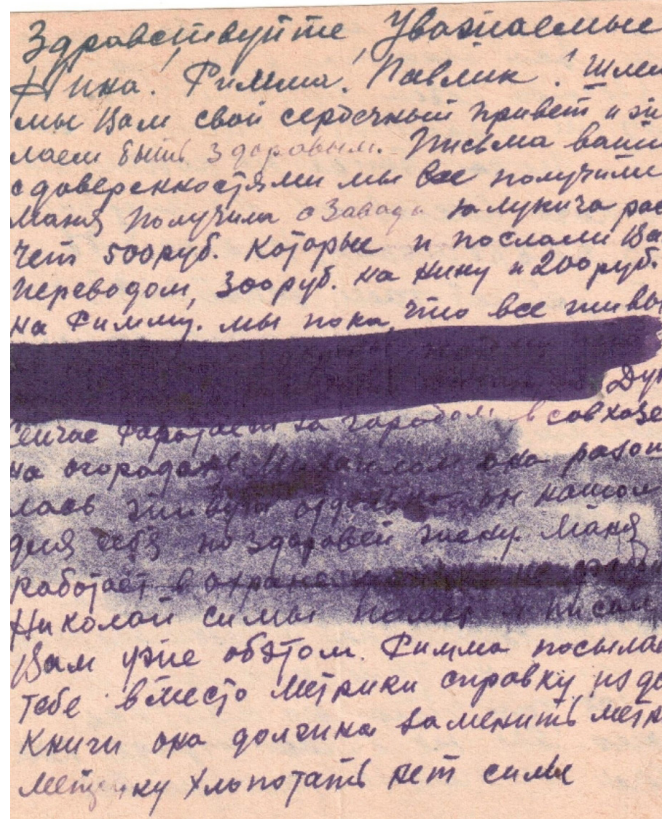 Здравствуйте Уважаемые
Нина! Римма! Павлик! Шлем
мы Вам свой сердечный привет и же
лаем быть здоровым. Письма ваши
с доверенностями мы все получили
Маня получила с Завода рас
чет 500руб. которые и послали Ва
переводом, 300руб. на Нину и 200руб.
на Римму. мы пока, что все живы
Дун
Сейчас работает за городом в совхозе
на огородах. Михаилом она разош
лась живут отдельно он нашол
для себя по здоровей жену. Маня
работает в охране
Николай симы помер я писал
Вам уже обэтом. Римма посыла
тебе вместо метрики справку из до
книги она должна заменить метр
метрику хлопотать нет силы